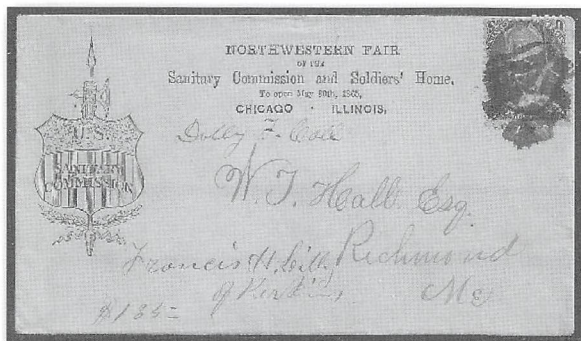 NORTHWESTERN FAIR
OF THE
Sanitary Commission and Soldiers' Home,
To open May 30th, 1865,
CHICAGO · ILLINOIS.
U.S.
SANITARY
COMMISSION
Dolly F.
W. T. Hall Esq.
Richmond
Me
Francis H.
$135=